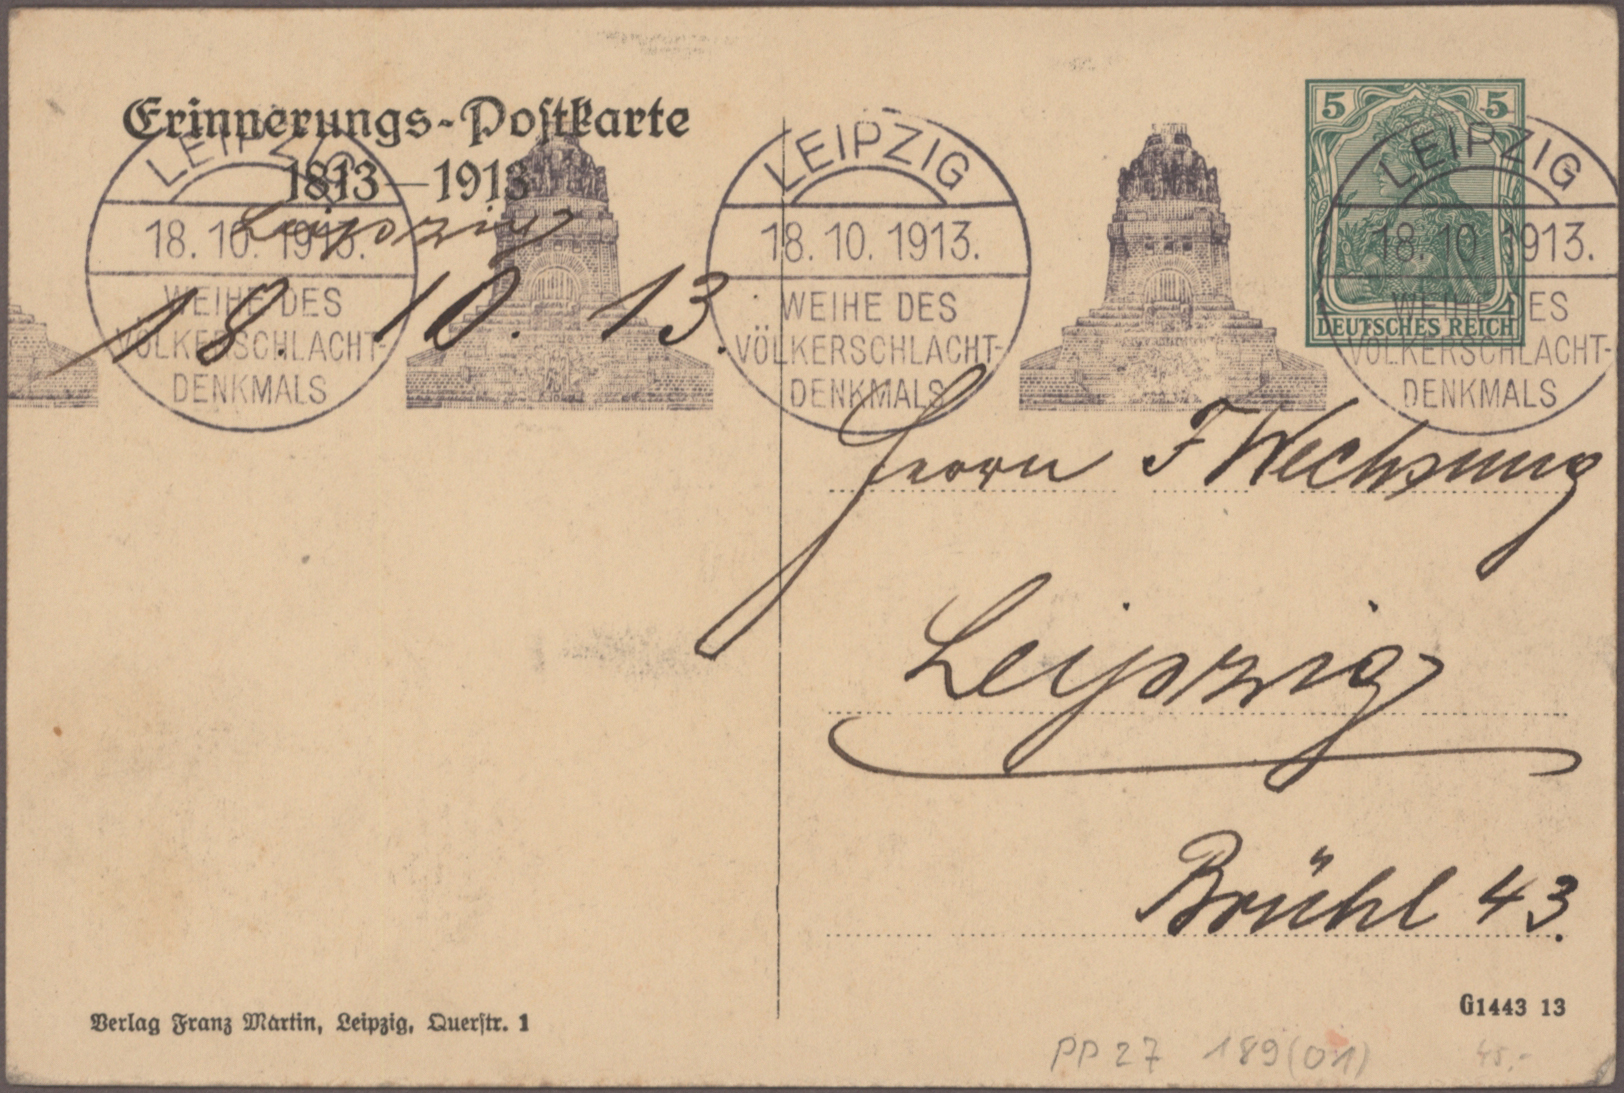 Erinnerungs-Postkarte
1813—1913
Leipzig
18. 10. 13.
LEIPZIG
18. 10. 1913.
WEIHE DES
VÖLKERSCHLACHT-
DENKMALS
LEIPZIG
18. 10. 1913.
WEIHE DES
VÖLKERSCHLACHT-
DENKMALS
5 5
DEUTSCHES REICH
LEIPZIG
18. 10. 1913.
WEIHE DES
VÖLKERSCHLACHT-
DENKMALS
Herrn F Wechsung
Leipzig
Brühl 43.
Verlag Franz Martin, Leipzig, Querstr. 1
G1443 13
PP27 189(01) 45.-